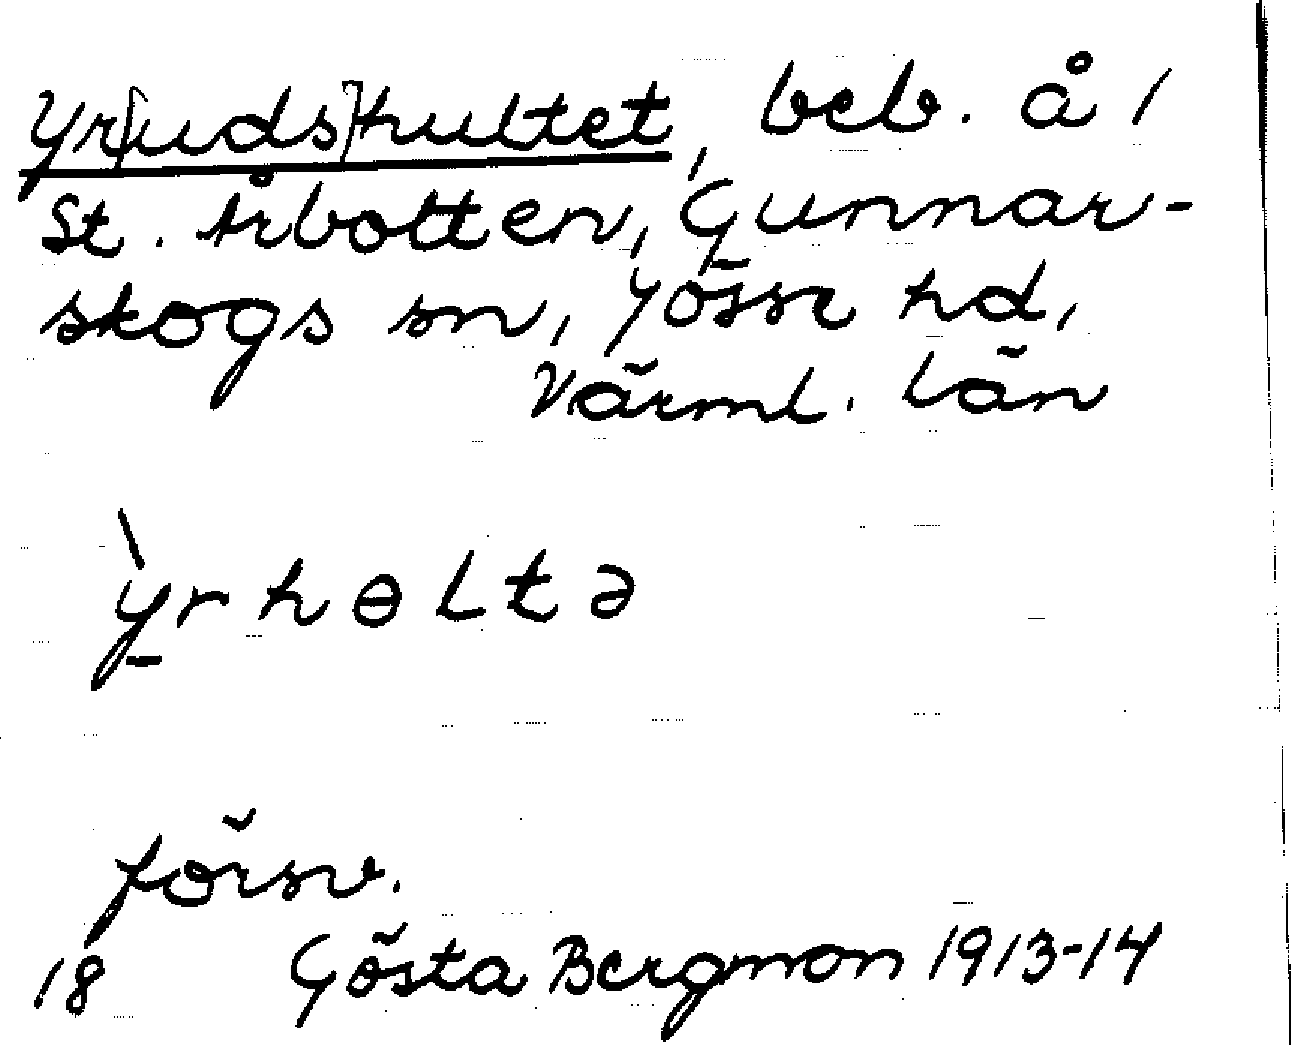 Yr[uds]hultet, beb. å 1
St. Årbotten, Gunnar-
skogs sn, Jösse hd,
Värml. län
`yrhɵltə
försv.
18 Gösta Bergman 1913-14